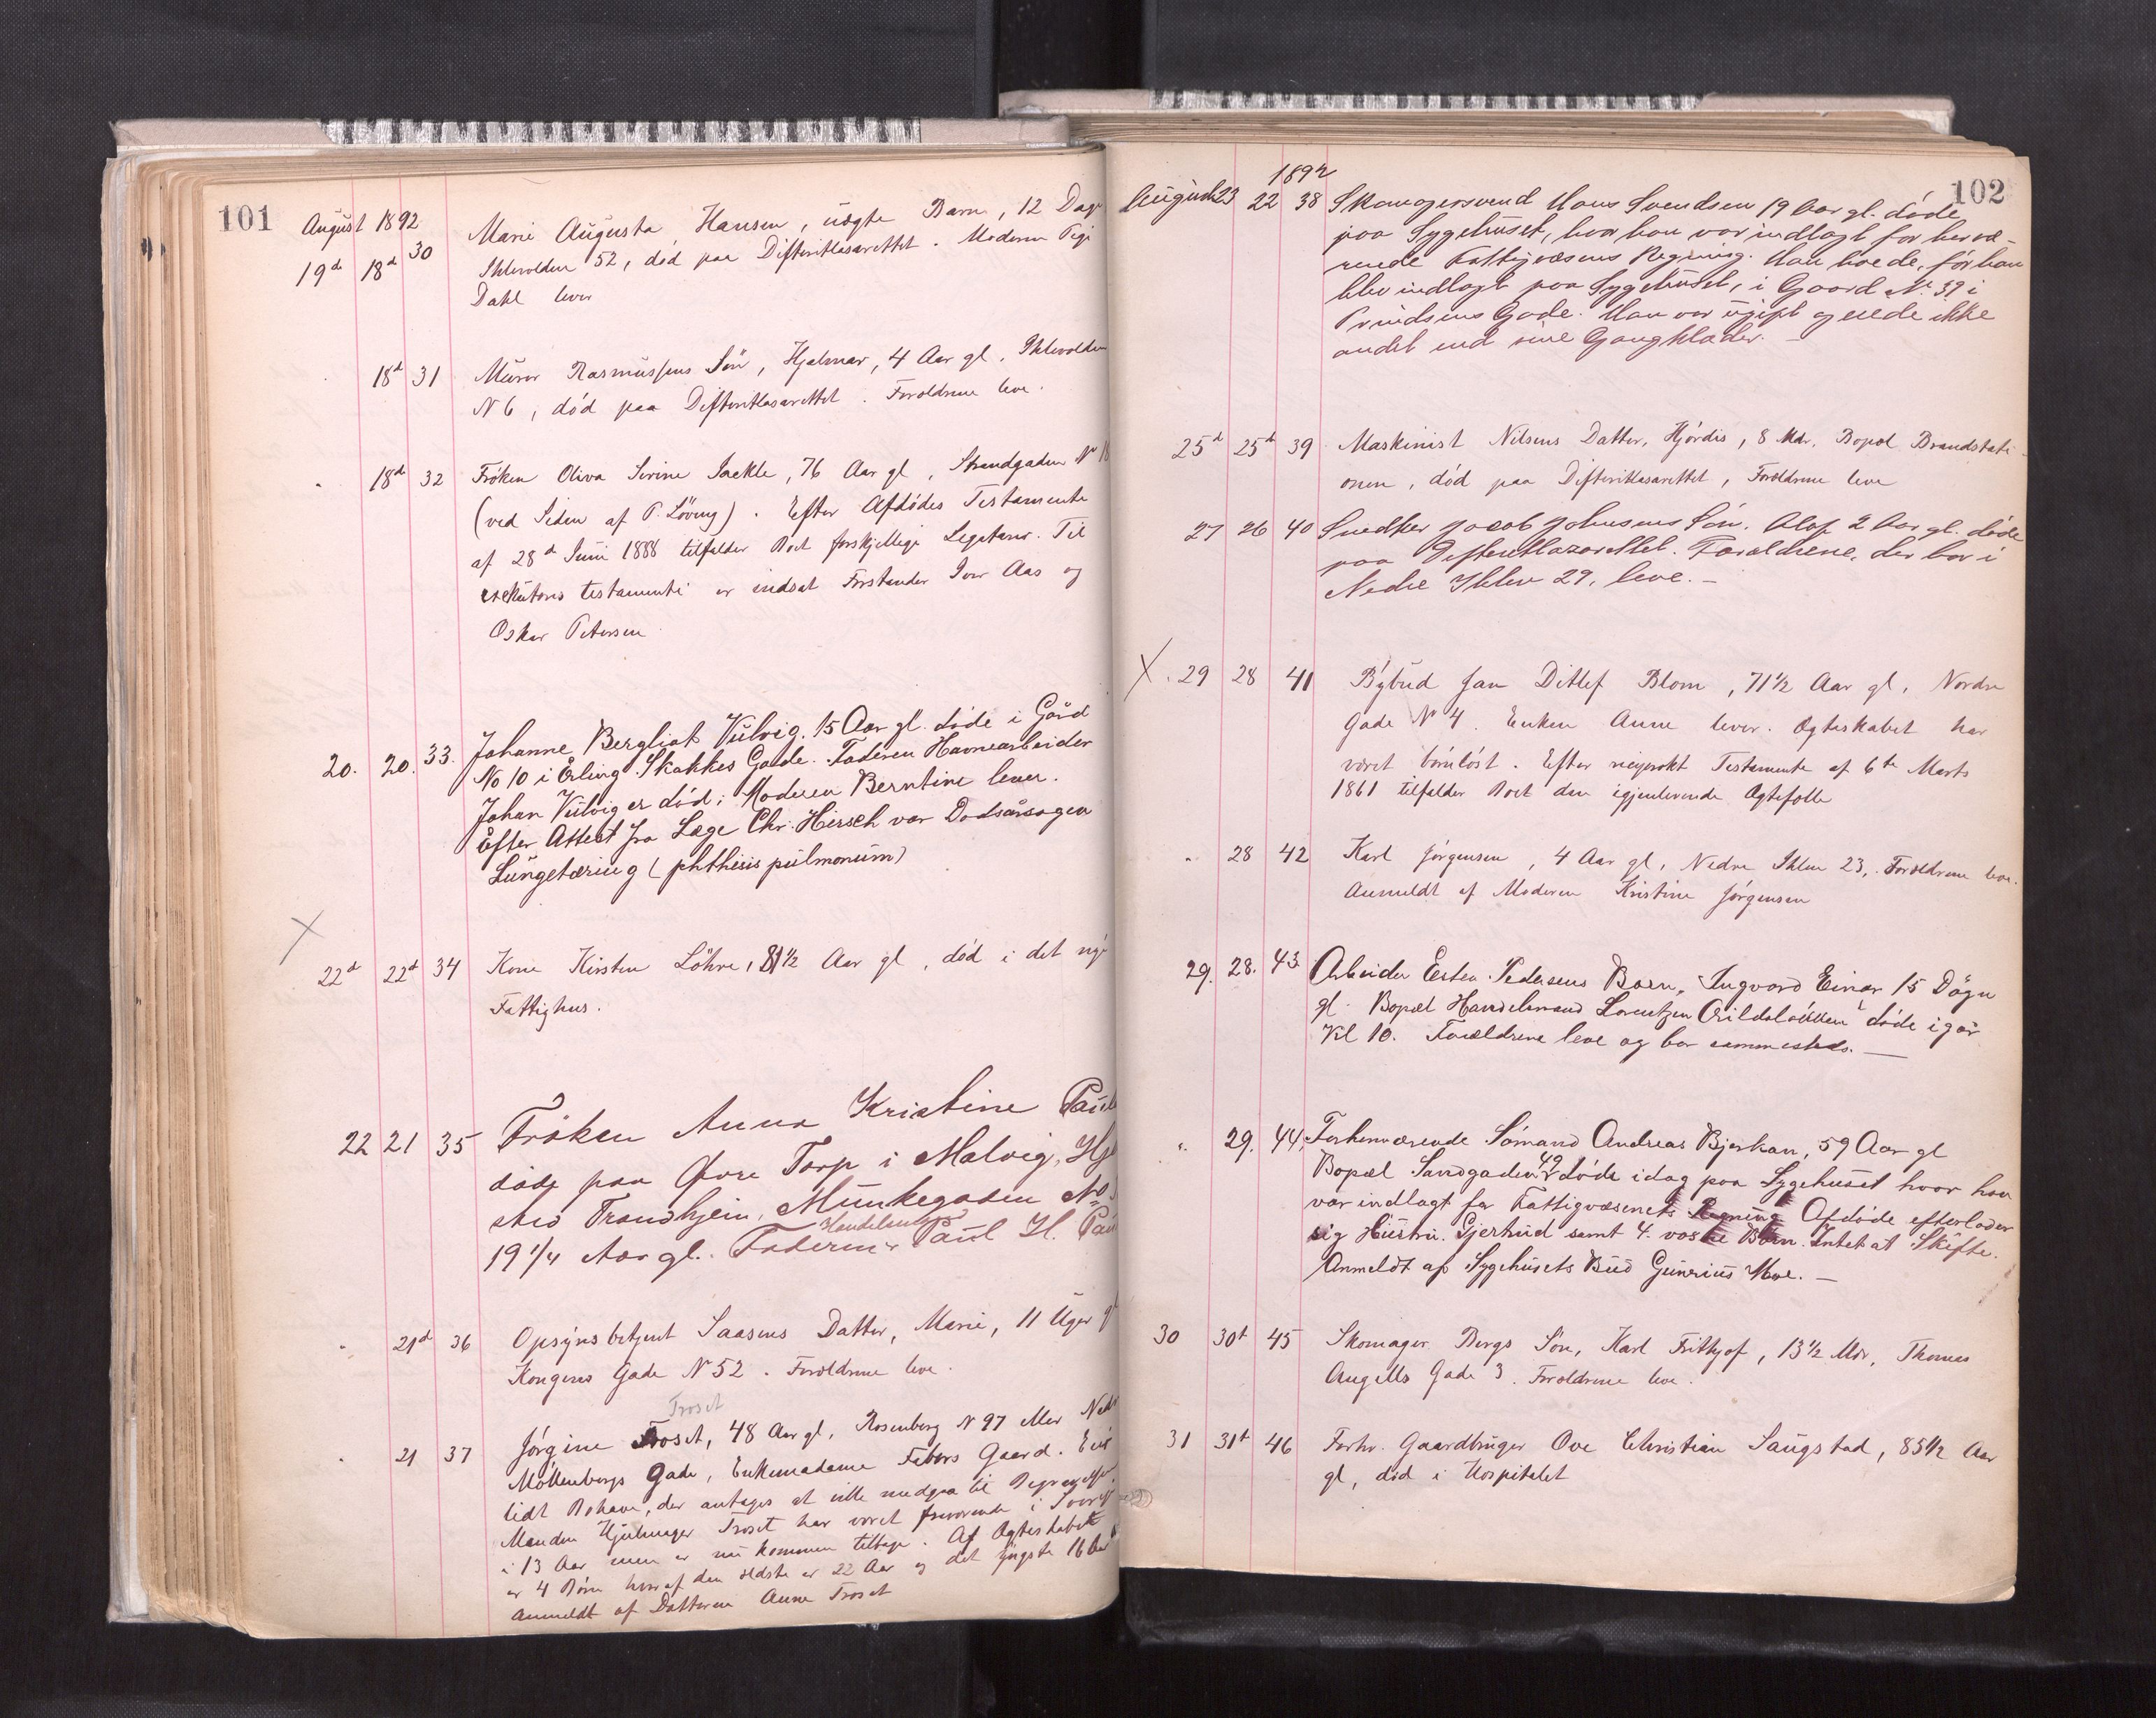 101
August 1892
19de 18de 30 Marie Augusta Hansen, uægte Barn, 12 Dage
Ihlevolden 52, död paa Difteritlasarettet. Moderen Pige
Dahl lever
18d 31 Murer Rasmussens Sön, Hjalmar, 4 Aar gl. Ihlevolden
N 6, död paa Difteritlasarettet. Forældrene leve.
" 18de 32 Fröken Oliva Serine Jackle, 76 Aar gl, Strandgaden N 18
(ved Siden af P. Löving). Efter Afdödes Testamente
af 28d Juni 1888 tilfalder Boet forskjellige Legatarer. Til
exekutores testamenti er indsat Forstander Iver Aas og
Oskar Petersen
20. 20. 33. Johanne Bergliot Vülvig. 15 Aar gl. döde i Gård
No 10 i Erling Skakkes Gade. Faderen Havnearbeider
Johan Vülvig er död; Moderen Berntine lever.
Efter Attest fra Læge Chr. Hirsch var Dödsårsagen
Lungetæring (phthisis pulmonum)
X
22d 22d 34 Kone Kirsten Löhre, 81 1/2 Aar gl, död i det nye
Fattighus.
22 21 35 Fröken Anna Kristine Paul
döde paa Övre Torp i Malvig, Hje
sted Trondhjem, Munkegaden No
Handelsmand
19 1/4 Aar gl. Faderen Paul H. Pau
" 21d 36 Opsynsbetjent Saasens Datter, Marie, 11 Uger gl
Kongens Gade N 52. Forældrene leve.
Troset
" 21 37 Jörgine Troset, 48 Aar gl, Rosenborg N 97 eller Nedre
Möllenbergs Gade, Enkemadame Febers Gaard. Eier
lidt Bohave, der antages at ville medgaa til Begravelsen.
Manden Hjulmager Troset har været fraværende i Sverige
i 13 Aar men er nu kommen tilbage. Af Ægteskabet
er 4 Börn hvoraf den ældste er 22 Aar og det yngste 16 Aar
Anmeldt af Datteren Anne Troset
102
1892
August 23 22 38 Skomagersvend Hans Svendsen 19 Aar gl. döde
paa Sygehuset, hvor han var indlagt for hervæ-
rende Fattigvæsens Regning. Han boede, för han
blev indlagt paa Sygehuset, i Gaard No 39 i
Prindsens Gade. Han var ugift og eiede ikke
andet end sine Gangklæder. —
25d 25d 39 Maskinist Nilsens Datter, Hjördis, 8 Mdr. Bopæl Brandstati-
onen, död paa Difteritlasarettet, Forældrene leve
27 26 40 Snedker Jacob Johnsens Sön. Olaf 2 Aar gl. döde
paa Difteritlazarettet. Forældrene, der bor i
Nedre Ihlen 29, leve. —
X. 29 28 41 Bybud Jan Ditlef Blom, 71 1/2 Aar gl, Nordre
Gade N 4. Enken Anne lever. Ægteskabet har
været börnlöst. Efter reciprokt Testamente af 6te Marts
1861 tilfalder Boet den igjenlevende Ægtefælle
" 28 42 Karl Jörgensen, 4 Aar gl, Nedre Ihlen 23, Forældrene leve.
Anmeldt af Moderen Kristine Jörgensen
29. 28. 43 Arbeider Esten Pedersens Barn, Ingvard Einar 15 Dögn
gl. Bopæl Handelsmand Lorentzen Arildsløkken döde igår
Kl 10. Forældrene leve og bor sammesteds. —
". 29. 44, Forhenværende Sömand Andreas Bjerkan, 59 Aar gl
Bopæl Sandgaden 49 döde idag paa Sygehuset hvor han
var indlagt for Fattigvæsenets Regning. Afdöde efterlader
sig Hustru. Gjertrud samt 4. voksne Börn. Intet at Skifte.
Anmeldt af Sygehusets Bud Gunerius Moe. —
30 30t 45 Skomager Bergs Sön, Karl Frithjof, 13 1/2 Mdr, Thomas
Angells Gade 3. Forældrene leve.
31 31t 46 Forhv. Gaardbruger Ove Christian Saugstad, 85 1/2 Aar
gl, död i Hospitalet